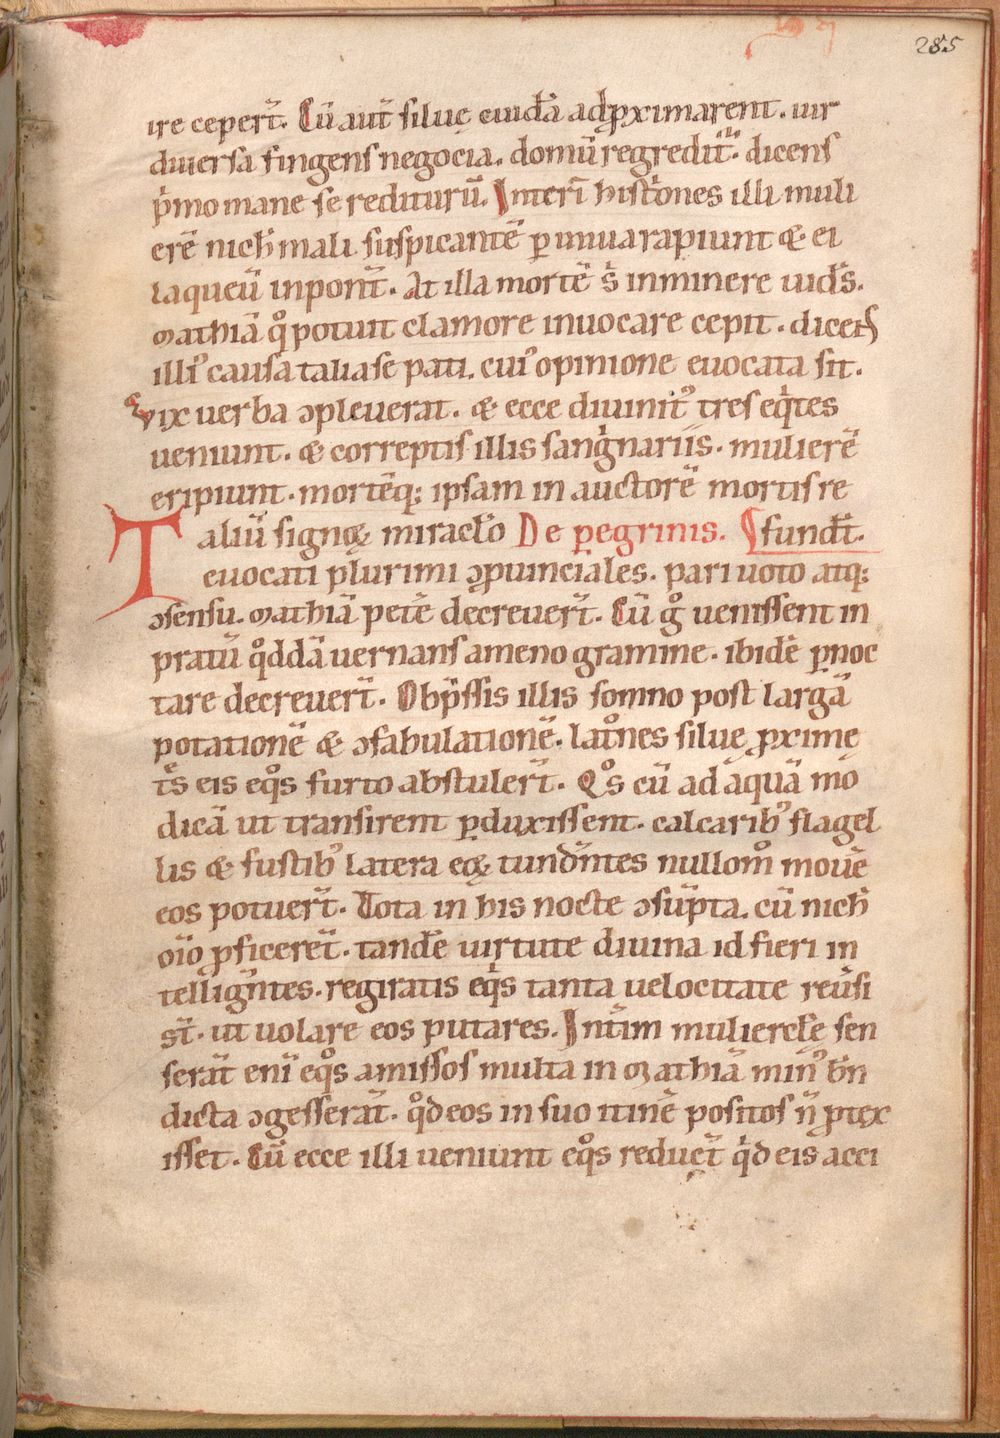 285
ire ceper̄t. Cū aut̄ siluę cuidā adꝓximarent. uir
diuersa fingens negocia. domū regredit̄. dicens
p̍mo mane se rediturū. Interī hist̍ones illi muli
erē nich̄ mali suspicantē ꝑ inuia rapiunt & ei
laqueū inpont̄. At illa mortē s̍ inminere uid̄s.
Mathiā qͦ potuit clamore inuocare cepit. dicens
illiꝰ causa talia se pati. cuiꝰ opinione euocata sit.
Vix uerba ↄpleuerat. & ecce diuinitꝰ tres eq̍tes
ueniunt. & correptis illis sang̍nariis. mulierē
eripiunt. mortēq; ipsam in auctorē mortis re
Taliū signoꝝ miraclo De ꝑegrinis. ¶ fundt̄.
euocati plurimi ↄꝓuinciales. pari uoto atq;
ↄsensu. Mathiā petē decreuer̄t. Cū gͦ uenissent in
pratū qͦddā uernans ameno gramine. ibidē ꝑnoc
tare decreuer̄t. Obp̄ssis illis somno post largā
potationē & ↄfabulationē. latͦnes siluę ꝓximę
t̄s eis eqͦs furto abstuler̄t. Qͦs cū ad aquā mo
dicā ut transirent ꝑduxissent. calcaribꝰ flagel
lis & fustibꝰ latera eoꝝ tund̄ntes nullomͦ mouē
eos potuer̄t. Tota in his nocte ↄsūpta. cū nich̄
oīo ꝓficeret̄. tandē uirtute diuina id fieri in
telliḡntes. regiratis eq̍s tanta uelocitate reu̍si
st̄. ut uolare eos putares. Int̄im muliercl̄ę sen
serāt enī eqͦs amissos multa in Mathiā minꝰ bn̄
dicta ↄgesserāt. qͦd eos in suo itinē positos n̄ ꝓtex
isset. Cū ecce illi ueniunt eqͦs reduc̄t q̍d eis acci